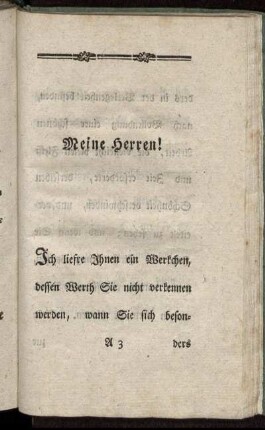 Meine Herren!
Ich liefre Ihnen ein Werkchen,
dessen Werth Sie nicht verkennen
werden, wann Sie sich beson-
A 3 ders